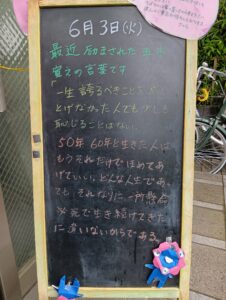 6月3日(火)
最近 励まされた 五木
寛之の言葉です
「一生 誇るべきことを
とげなかった人でも少しも
恥じることはない。
50年 60年と生きた人は
もうそれだけでほめてあ
げていい。どんな人生であっ
ても、それなりに一所懸命
必死で生き続けてきた
に違いないからである。